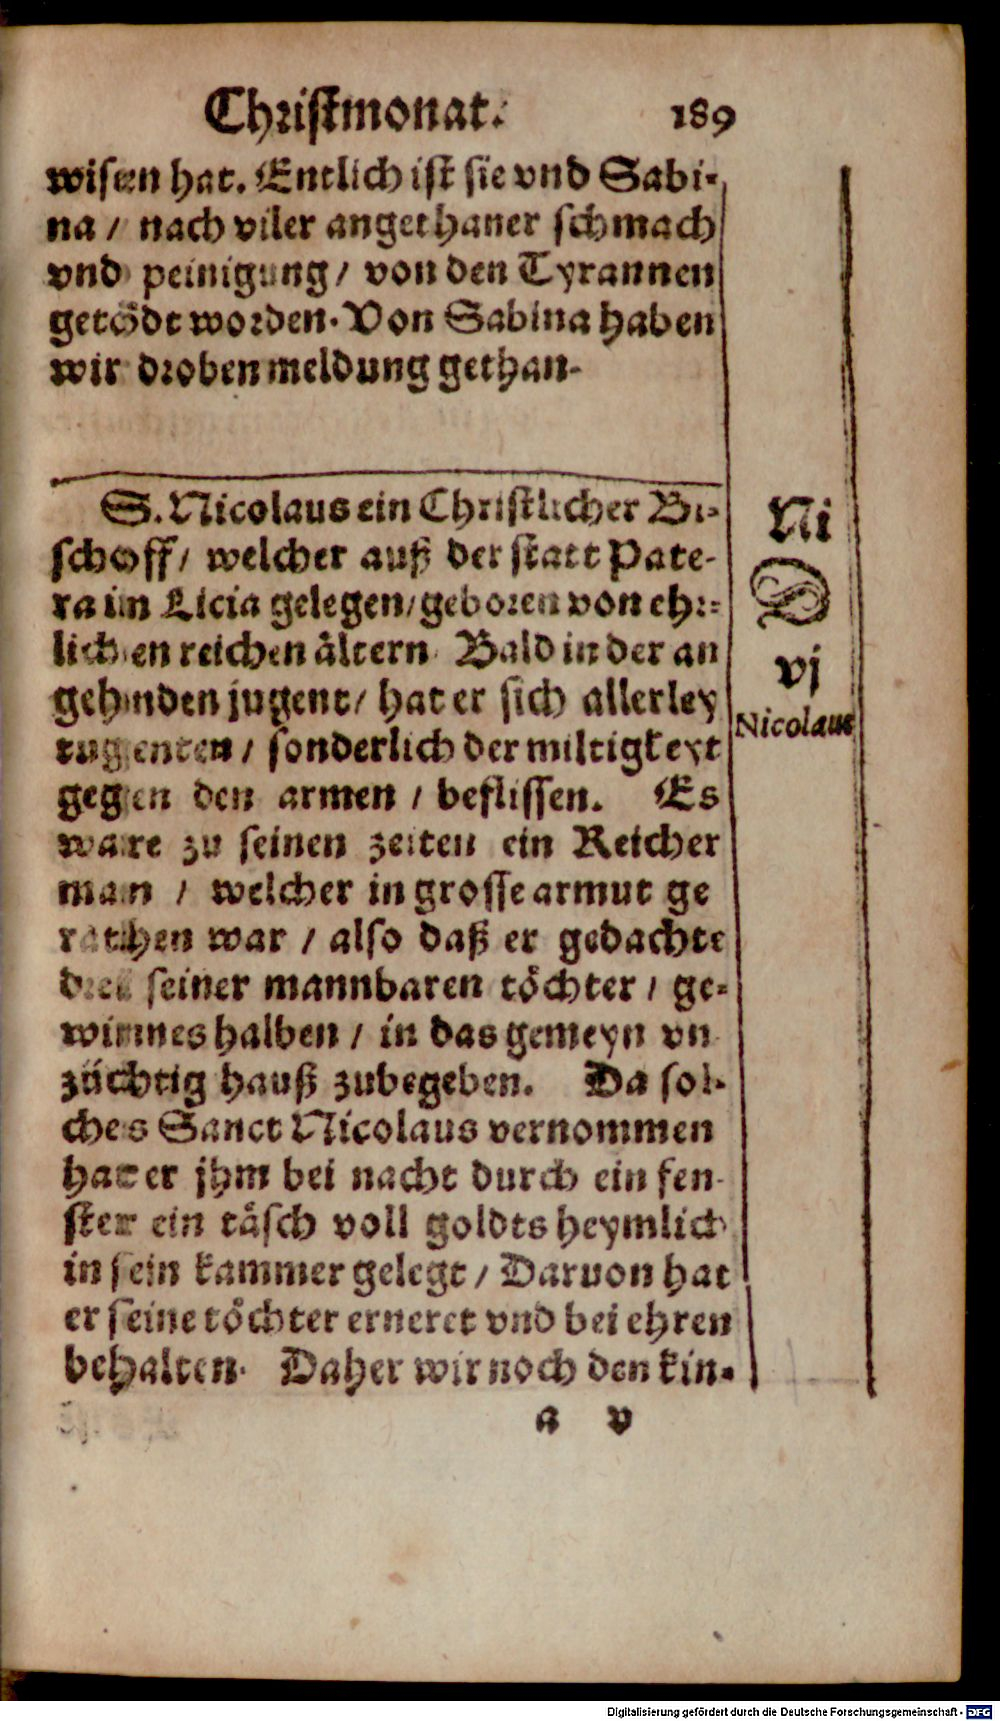 Christmonat. 189
wisen hat. Entlich ist sie vnd Sabi-
na / nach viler angethaner schmach
vnd peinigung / von den Tyrannen
getödt worden. Von Sabina haben
wir droben meldung gethan.
S. Nicolaus ein Christlicher Bi-
schoff / welcher auß der statt Pate-
ra im Licia gelegen / geboren von ehr-
lichen reichen ältern. Bald in der an
gehnden jugent / hat er sich allerley
tugenten / sonderlich der miltigkeyt
gegen den armen / beflissen. Es
ware zu seinen zeiten ein Reicher
man / welcher in grosse armut ge
rathen war / also daß er gedachte
drei seiner mannbaren töchter / ge-
winnes halben / in das gemeyn vn
züchtig hauß zubegeben. Da sol-
ches Sanct Nicolaus vernommen
hat er jhm bei nacht durch ein fen-
ster ein täsch voll goldts heymlich
in sein kammer gelegt / Daruon hat
er seine töchter erneret vnd bei ehren
behalten. Daher wir noch den kin-
a v
Ni
D
vj
Nicolaus
Digitalisierung gefördert durch die Deutsche Forschungsgemeinschaft - DFG